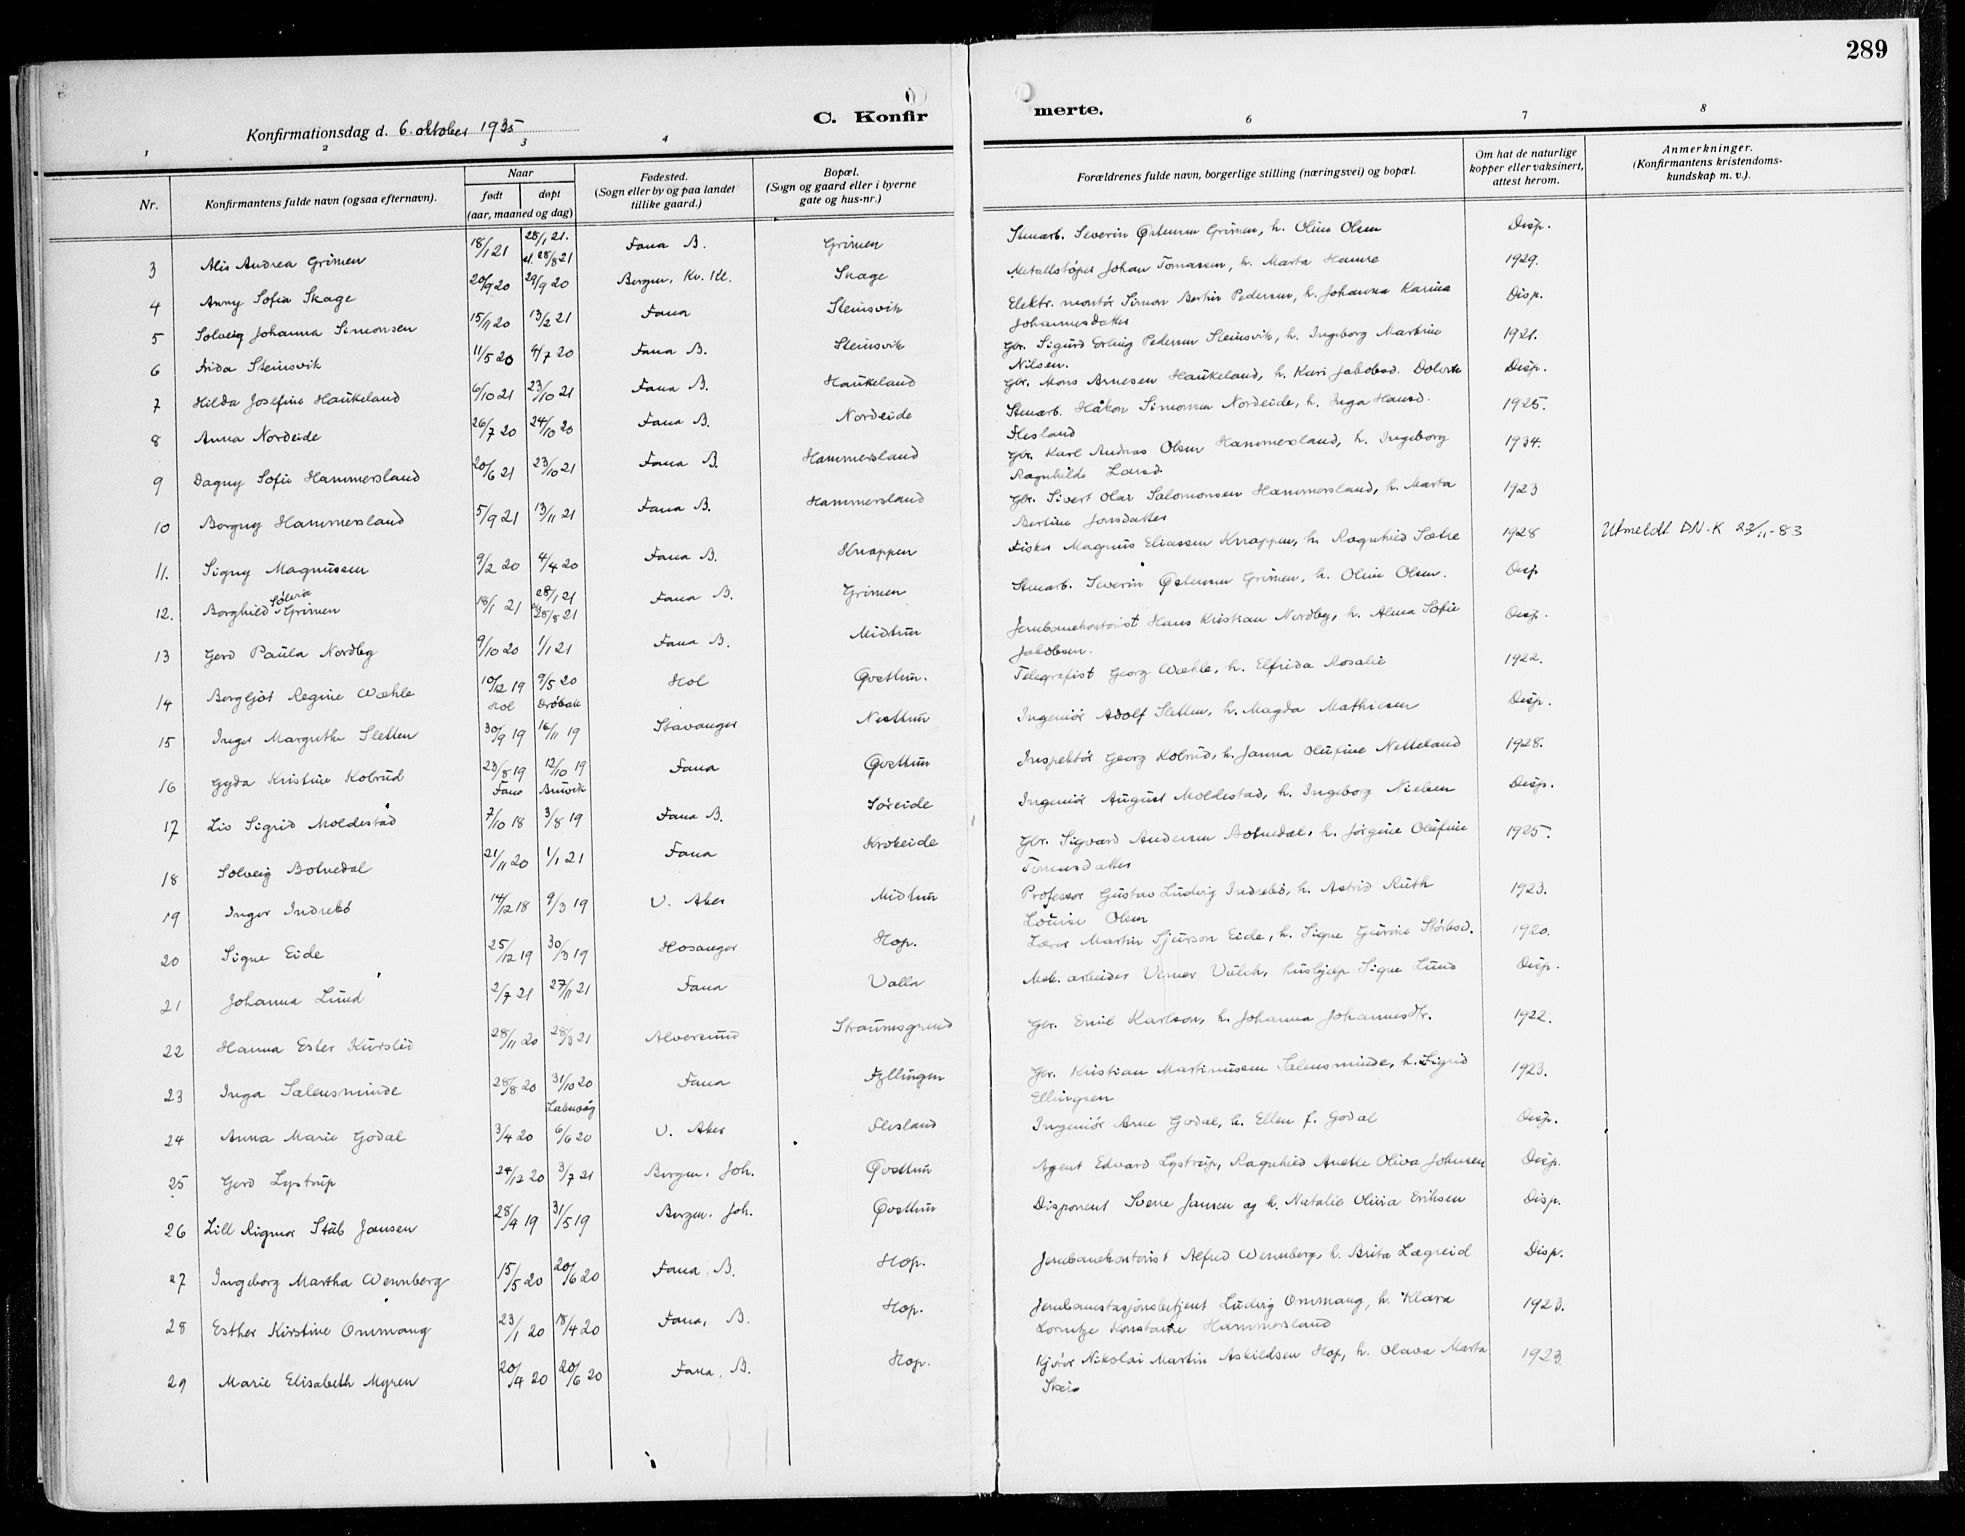 289
Konfirmationsdag d. 6. oktober 1935
C. Konfirmerte.
1 2 3 4 6 7 8
Nr.
Konfirmantens fulde navn (ogsaa efternavn).
Naar
født døpt
(aar, maaned og dag)
Fødested.
(Sogn eller by og paa landet
tillike gaard.)
Bopæl.
(Sogn og gaard eller i byerne
gate og hus-nr.)
Forældrenes fulde navn, borgerlige stilling (næringsvei) og bopæl.
Om hat de naturlige
kopper eller vaksinert,
attest herom.
Anmerkninger.
(Konfirmantens kristendoms-
kundskap m. v.).
3 Alis Andrea Grimen 18/1 21 28/1 21. st. 28/8 21 Fana B. Grimen Stenarb. Severin Østensen Grimen, h. Oline Olsen Disp.
4 Anny Sofia Skage 20/9 20 29/9 20 Bergen, Kv. Kl. Skage Metallstøper Johan Tomassen, h. Marta Hamre 1929.
5 Solveig Johanna Simonsen 15/11 20 13/2 21 Fana Steinsvik Elektr. montør Simon Bertin Pedersen, h. Johanna Karina Disp.
Johannesdatter
6 Frida Steinsvik 11/5 20 4/7 20 Fana B. Steinsvik Gbr. Sigurd Erling Pedersen Steinsvik, h. Ingeborg Martine 1921.
Nilsen.
7 Hilda Josefine Haukeland 6/10 21 23/10 21 Fana B. Haukeland Gbr. Mons Arnesen Haukeland, h. Kari Jakobsd. Dolvik Disp.
8 Anna Nordeide 26/7 20 24/10 20 Fana B. Nordeide Stenarb. Håkon Simonsen Nordeide, h. Inga Hansd. 1925.
Flesland
9 Dagny Sofie Hammersland 20/6 21 23/10 21 Fana B. Hammersland Gbr. Karl Andreas Olsen Hammersland, h. Ingeborg 1934.
Ragnhilde Larsd.
10 Borgny Hammersland 5/9 21 13/11 21 Fana B. Hammersland Gbr. Sivert Olai Salomonsen Hammersland, h. Marta 1923
Bertine Jonsdatter
11. Signy Magnussen 9/2 20 4/4 20 Fana B. Knappen Fisker Magnus Eliassen Knappen, h. Ragnhild Sætre 1928 Utmeldt DN.K 22/11-83
12. Borghild Solvia Grimen 18/1 21 28/1 21 st. 28/8 21 Fana B. Grimen Stenarb. Severin Østensen Grimen, h. Oline Olsen. Disp
13 Gerd Paula Nordby 9/10 20 1/1 21 Fana B. Midtun Jernbanekontorist Hans Kristian Nordby, h. Alma Sofie Disp.
Jakobsen.
14 Bergljot Regine Wæhle 10/12 19 9/5 20 Hol Øvsttun. Telegrafist Georg Wæhle, h. Elfrida Rosalie 1922.
Hol Drøbak
15 Inger Margrethe Sletten 30/9 19 16/11 19 Stavanger Nesttun Ingeniør Adolf Sletten, h. Magda Mathiesen Disp.
16 Gyda Kristine Kobrud 23/8 19 12/10 19 Fana Øvsttun Inspektør Georg Kobrud, h. Janna Olufine Netteland 1928.
Fana Bruvik
17 Lis Sigrid Moldestad 7/10 18 3/8 19 Fana B. Søreide Ingeniør August Moldestad, h. Ingeborg Nielsen Disp.
18 Solveig Botnedal 21/11 20 1/1 21 Fana Krokeide Gbr. Sigvard Andersen Botnedal, h. Jørgine Olufine 1925.
Tomasdatter
19 Inger Indrebø 14/12 18 9/3 19 V. Aker Midtun Professor Gustav Ludvig Indrebø, h. Astrid Ruth 1923.
Louise Olsen
20 Signe Eide 25/12 19 30/3 19 Hosanger Hop. Lærer Martin Sjurson Eide, h. Signe Gurine Størksd. 1920.
21 Johanna Lund 2/7 21 27/11 21 Fana Valla Mek. arbeider Verner Vulch, hushjelp Signe Lund Disp.
22 Hanna Ester Kurslid 28/11 20 28/3 21 Alversund Straumsgrend Gbr. Emil Karlson, h. Johanna Johannesdtr. 1922.
23 Inga Salensminde 28/8 20 31/10 20 Fana Fyllingen Gbr. Kristian Martinussen Salensminde, h. Sigrid 1923.
Laksevåg Ellingsen
24 Anna Marie Godal 3/4 20 6/6 20 V. Aker Flesland Ingeniør Arne Godal, h. Ellen f. Godal Disp.
25 Gerd Lystrup 24/12 20 3/7 21 Bergen. Joh. Øvsttun Agent Edvard Lystrup, Ragnhild Anette Oliva Johnsen Disp.
26 Lill Rigmor Stub Jansen 28/4 19 31/5 19 Bergen. Joh. Øvsttun Disponent Sverre Jansen og h. Natalie Olivia Eriksen Disp.
27 Ingeborg Martha Wennberg 15/5 20 20/6 20 Fana, B. Hop. Jernbanekontorist Alfred Wennberg, h. Brita Lægreid Disp.
28 Esther Kirstine Ommang 23/1 20 18/4 20 Fana, B. Hop. Jernbanestasjonsbetjent Ludvig Ommang, h. Klara 1923.
Lorentze Konstanse Hammersland
29 Marie Elisabeth Myren 20/4 20 20/6 20 Fana, B. Hop. Kjører Nikolai Martin Askildsen Hop, h. Olava Marta 1923
Skeie